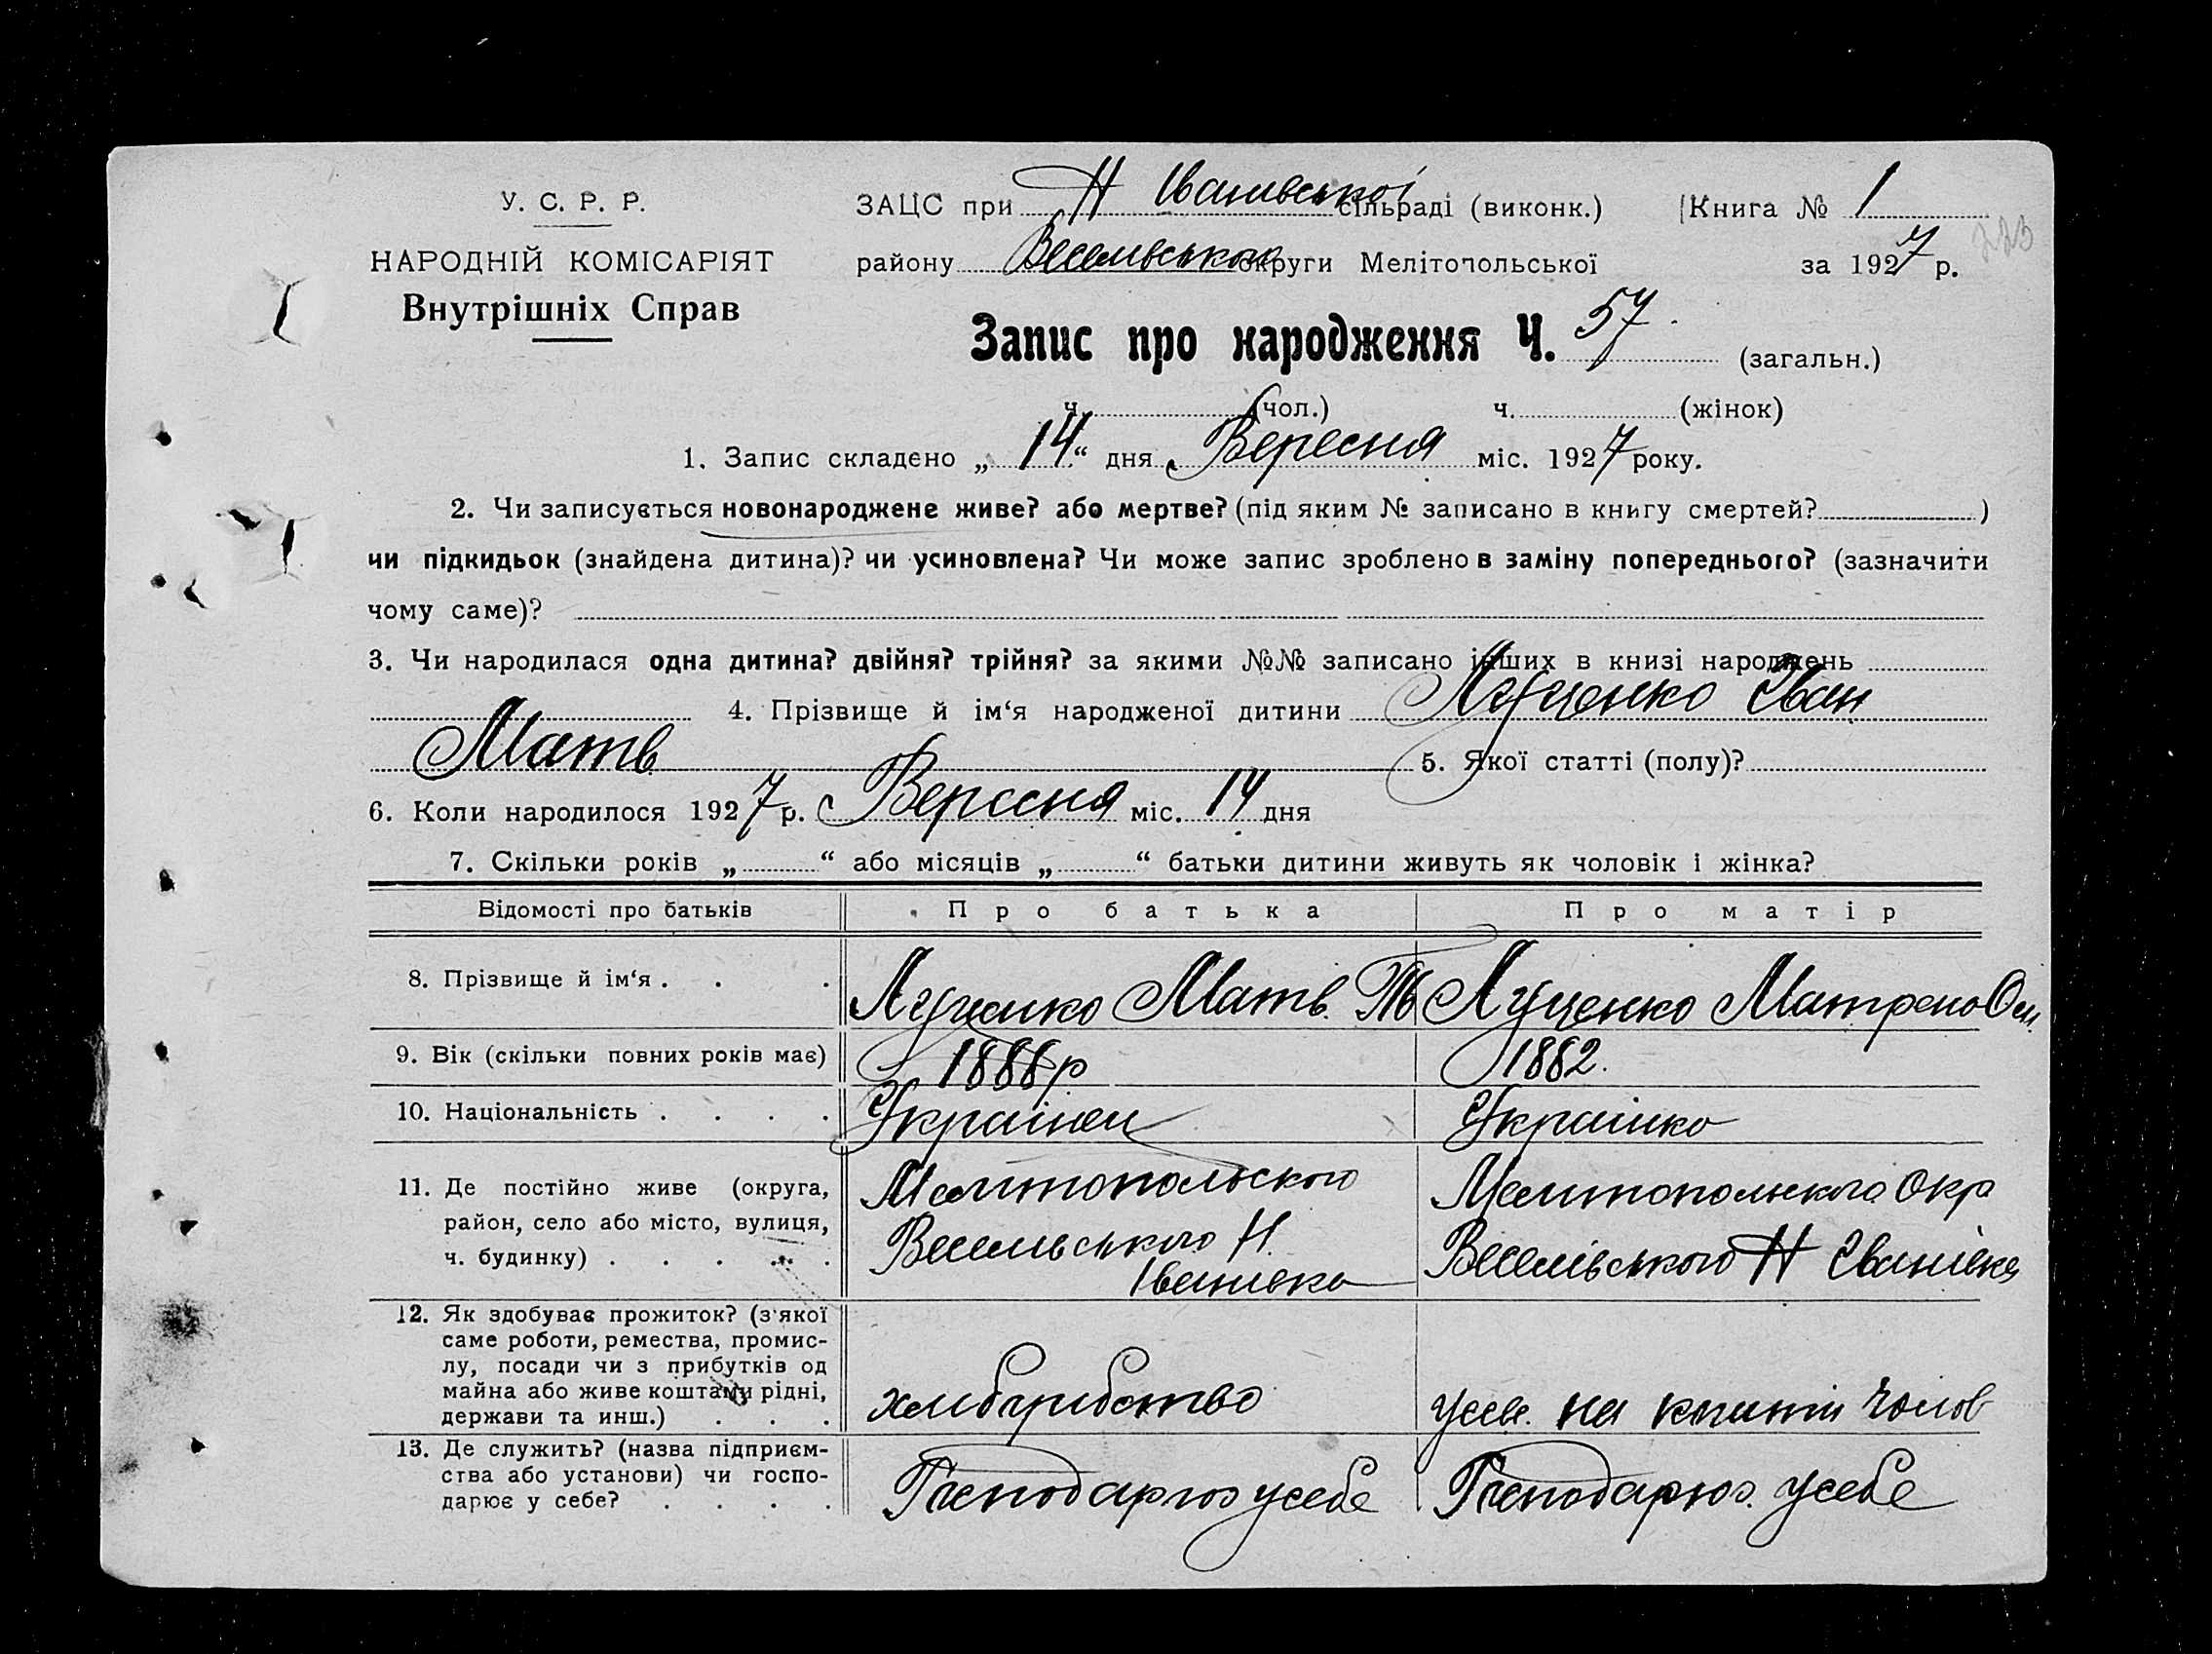 У. С. Р. Р.
НАРОДНІЙ КОМІСАРІЯТ
Внутрішніх Справ
ЗАЦС при Н Іванівської сільраді (виконк.) Книга № 1
району Веселівського округи Мелітопольської за 1927 р.
223
Запис про народження Ч. 57 (загальн.)
ч. (чол.) ч. (жінок)
1. Запис складено „ 14 “ дня Вересня міс. 1927 року.
2. Чи записується новонароджене живе? або мертве? (під яким № записано в книгу смертей? )
чи підкидьок (знайдена дитина)? чи усиновлена? Чи може запис зроблено в заміну попереднього? (зазначити
чому саме)?
3. Чи народилася одна дитина? двійня? трійня? за якими №№ записано інших в книзі народжень
4. Прізвище й ім‘я народженої дитини Луценко Іван
Матв 5. Якої статті (полу)?
6. Коли народилося 1927 р. Вересня міс. 14 дня
7. Скільки років „ “ або місяців „ “ батьки дитини живуть як чоловік і жінка?
Відомості про батьків Про батька Про матір
8. Прізвище й ім‘я . . . Луценко Матв. Луценко Матрена
9. Вік (скільки повних років має) 1888 р 1882.
10. Національність . . . . Українец Українко
11. Де постійно живе (округа,
район, село або місто, вулиця,
ч. будинку) . . . . .
Мелитопольского
Веселивського Н.
Іванивка
Мелитопольского Окр
Веселівського Н Іванівка
12. Як здобуває прожиток? (з'якої
саме роботи, ремества, промис-
лу, посади чи з прибутків од
майна або живе коштами рідні,
держави та инш.) . . .
хлибарибство
на кошти чолов
13. Де служить? (назва підприєм-
ства або установи) чи госпо-
дарює у себе? . . . .
Господарюэ усебе
Господарюэ. усебе